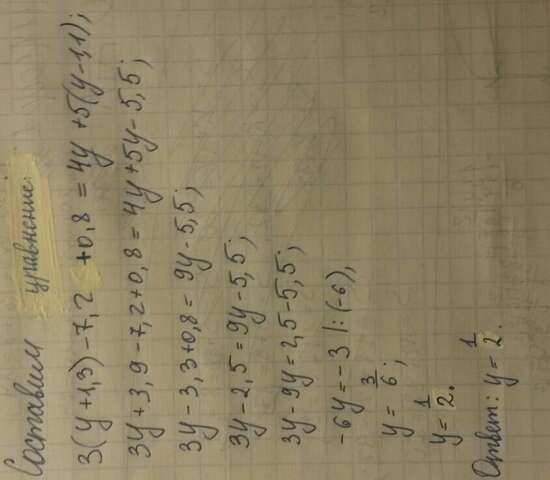 Составим уравнение:
3(y+1,3)-7,2+0,8=4y+5(y-1,1);
3y+3,9-7,2+0,8=4y+5y-5,5;
3y-3,3+0,8=9y-5,5;
3y-2,5=9y-5,5;
3y-9y=2,5-5,5;
-6y=-3|:(-6);
y=3/6;
y=1/2.
Ответ: y=1/2.